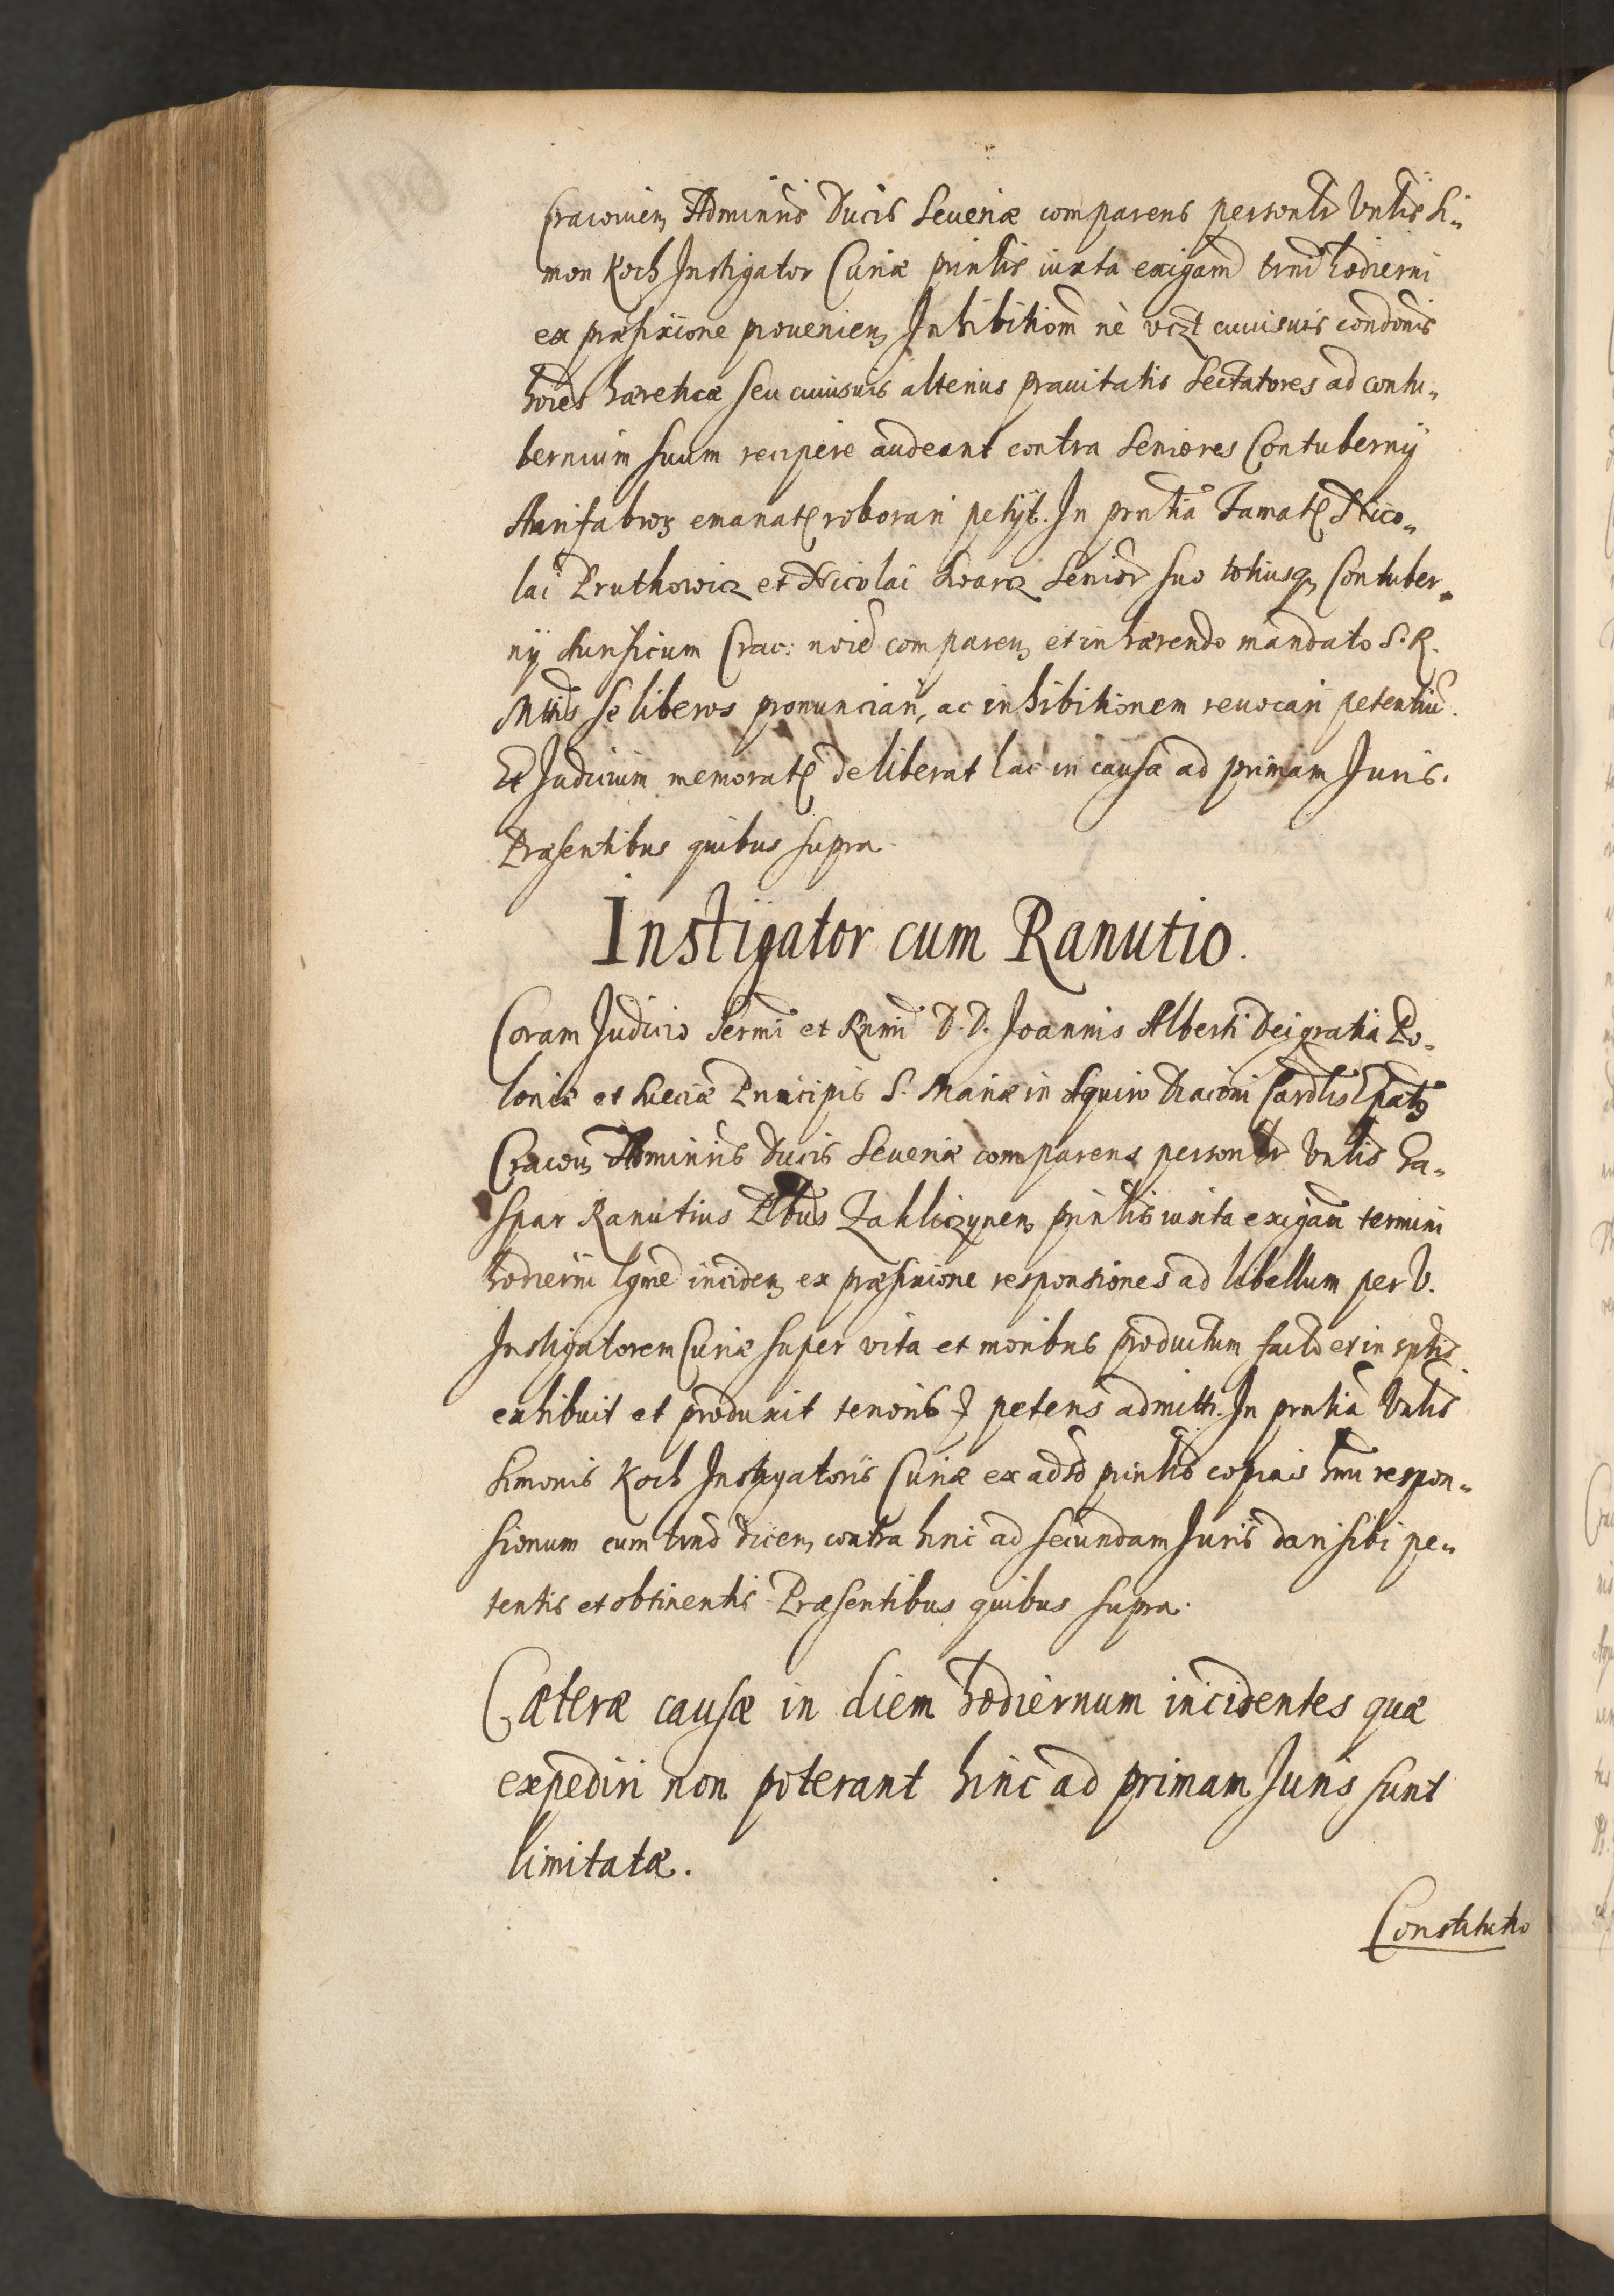 Cracouien Adminris Ducis Seueriæ comparens personlr Vnlis Si„
mon Koch Instigator Curiæ prinlis iuxta exigam trni hodierni
ex præfixione prouenien Inhibitiom nè vczt cuiusuis condonis
hoies hæreticæ seu cuiusuis alterius prauitatis Sectatores ad contu„
bernium suum recipere audeant contra Seniores Contubernij
Aurifabror emanat roborari petijt. In prntia Famat Nico„
lai Pruthowicz et Nicolai Swarcz Senior suo totiusq Contuber„
nij Aurificum Crac: noie comparen et inhærendo mandato S. R.
Mtis se liberos pronunciari, ac inhibitionem reuocari petentiu.
Et Judicium memorat deliberat hac in causa ad primam Juris.
Præsentibus quibus supra
Instigator cum Ranutio.
Coram Judicio Sermi et Rnmi D. D. Joannis Alberti Dei gratia Po„
loniæ et Sueciæ Principis S. Mariæ in Aquiro Diaconi Cardlis Epatus
Cracoun Adminris Ducis Seueriæ comparens personlr Vnlis Ga„
spar Ranutius Plbus Zakliczynen prinlis iuxta exigam termini
hodierni lgme inciden ex præfixione responsiones ad libellum per V.
Instigatorem Curiæ super vita et moribus productum facto et in sptis
exhibuit et produxit tenoris petens admitti. In prntia Vnlis
Simonis Koch Instigatoris Curiæ ex adso prinlis copiais hmi respon„
sionum cum trno dicen contra hinc ad secundam Juris dari sibi pe„
tentis et obtinentis Præsentibus quibus supra.
Cæteræ causæ in diem hodiernum incidentes quæ
expediri non poterant hinc ad primam Juris sunt
limitatæ.
Constitutio